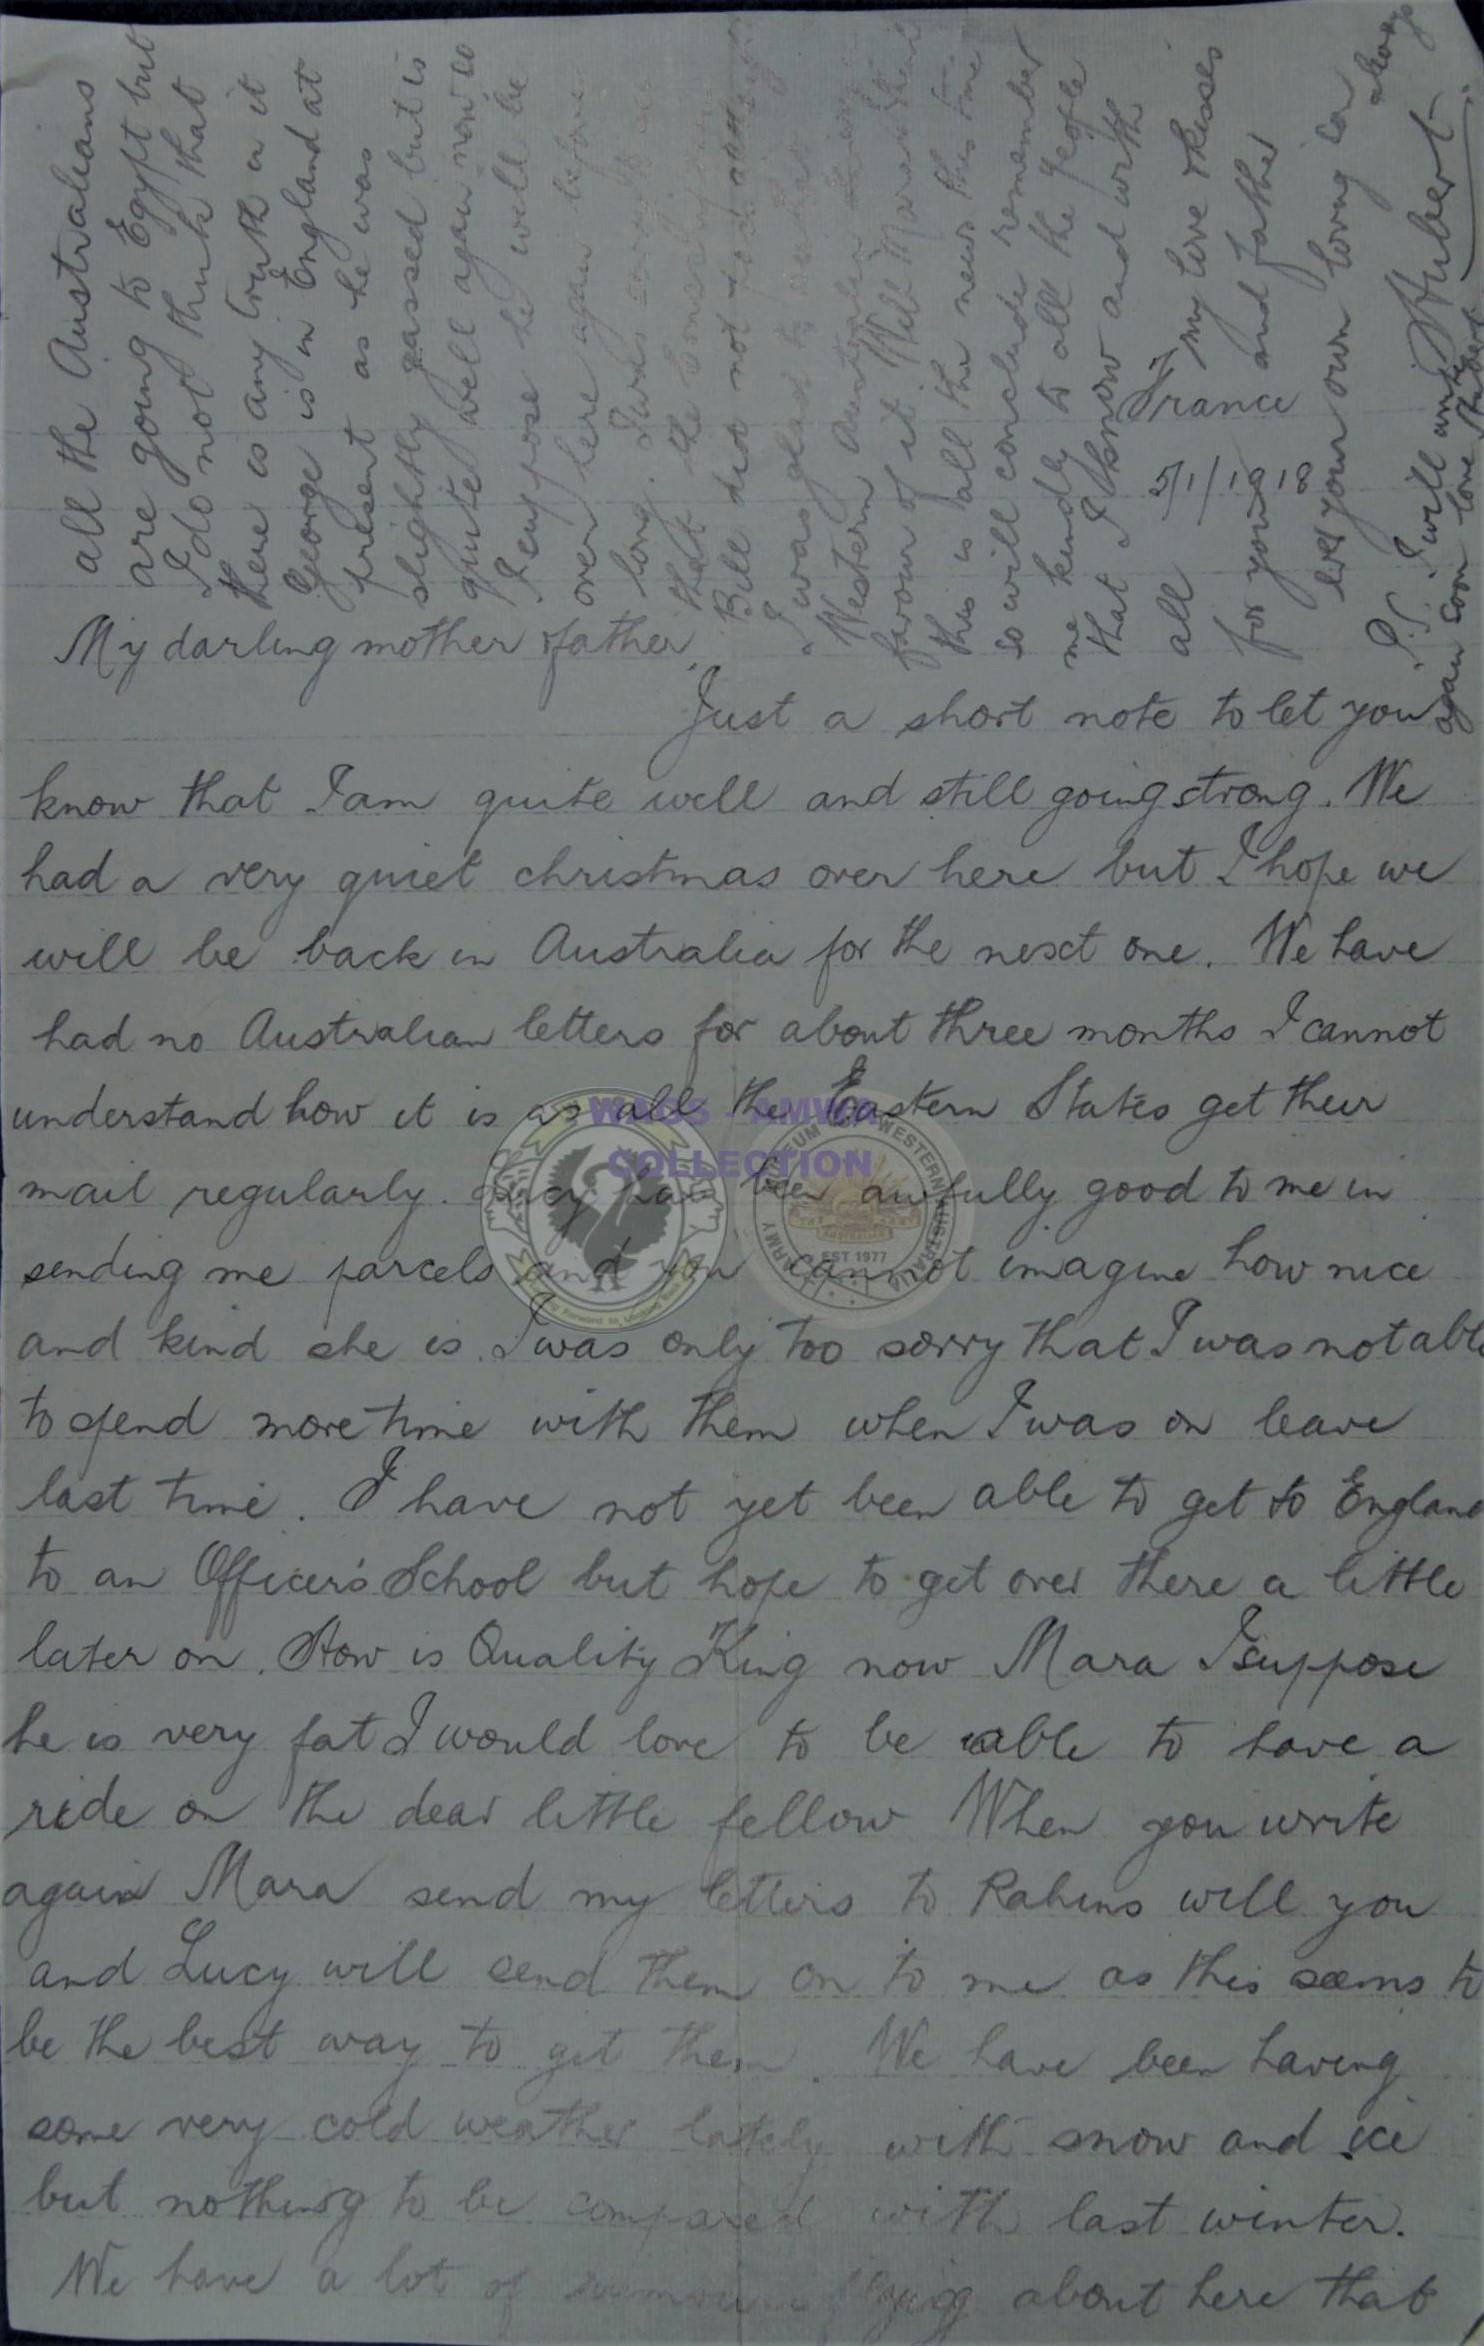 France
5/1/1918
My darling mother & father
Just a short note to let you
know that I am quite well and still going strong. We
had a very quiet christmas over here but I hope we
will be back in Australia for the next one. We have
had no Australian letters for about three months I cannot
understand how it is as all the Eastern States get their
mail regularly. Lucy has been awfully good to me in
sending me parcels and you cannot imagine how nice
and kind she is. I was only too sorry that I was not able
to spend more time with them when I was on leave
last time. I have not yet been able to get to England
to an Officer's School but hope to get over there a little
later on. How is Quality King now Mara I suppose
he is very fat I would love to be able to have a
ride on the dear little fellow When you write
again Mara send my letters to Rahins will you
and Lucy will send them on to me as this seems to
be the best way to get them. We have been having
some very cold weather lately with snow and ice
but nothing to be compared with last winter.
We have a lot of rumours flying about here that
all the Australians
are going to Egypt but
I do not think that
there is any truth in it
George is in England at
present as he was
slightly gassed but is
quite well again now so
I suppose he will be
over here again before
long. I was sorry to see
that the Conscription
Bill did not pass
I was glad to see that
Western Australia
favour of it. Well Mara
this is all the news this time
so will conclude remember
me kindly to all the people
that I know and with
all my love & kisses
for you and father
Ever your own loving son
always
Hubert
P.S. I will write
again soon love Hubert
WAGS - AMWA
COLLECTION
ARMY MUSEUM OF WESTERN AUSTRALIA
EST 1977